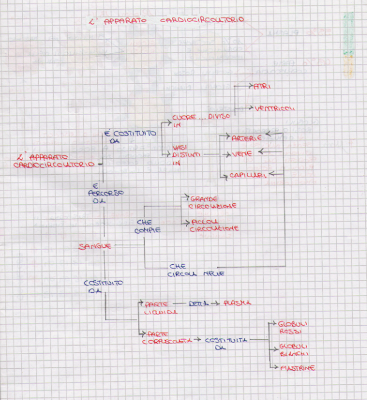 L' APPARATO CARDIOCIRCOLATORIO
ATRI
CUORE ... DIVISO
IN
VENTRICOLI
È COSTITUITO
DA
ARTERIE
L' APPARATO
CARDIOCIRCOLATORIO
VASI
DISTINTI
IN
VENE
CAPILLARI
È
PERCORSO
DA
GRANDE
CIRCOLAZIONE
CHE
COMPIE
PICCOLA
CIRCOLAZIONE
SANGUE
CHE
CIRCOLA NELLE
COSTITUITO
DA
PARTE
LIQUIDA
DETTA
PLASMA
PARTE
CORPUSCOLATA
COSTITUITA
DA
GLOBULI
ROSSI
GLOBULI
BIANCHI
PIASTRINE